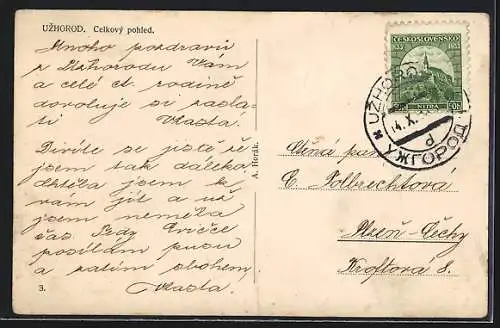 UŽHOROD. Celkový pohled.
Mnoho pozdravů
z Užhorodu Vám
a celé ct. rodině
dovoluje si zaslati
Vlasta.
Divíte se jistě že
jsem tak daleko
chtěla jsem k
vám jít a už
jsem neměla
čas. Tedy
posílám pusu
a zatím sbohem
Vlasta.
3.
A. Horák.
ČESKOSLOVENSKO
833 1933
NITRA
50h
UŽHOROD
УЖГОРОД
Ctěná paní
C. Folbrechtová
Plzeň-Čechy
Kroftova 8.